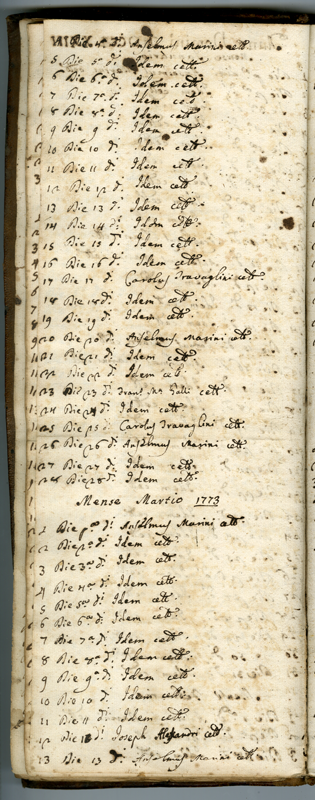 Die 4ª dᵃ. Anselmus Marini cett.
5 Die 5ª dᵃ. Idem cett.
6 Die 6ª dᵃ. Idem cett.
7 Die 7ª dᵃ. Idem cett.
8 Die 8ª dᵃ. Idem cett.
9 Die 9 dᵃ. Idem cett.
10 Die 10 dᵃ. Idem cett.
11 Die 11 dᵃ. Idem cett.
12 Die 12 dᵃ. Idem cett.
13 Die 13 dᵃ. Idem cett.
14 Die 14 dᵃ. Idem cett.
15 Die 15 dᵃ. Idem cett.
16 Die 16 dᵃ. Idem cett.
17 Die 17 dᵃ. Carolus Travaglini cett.
18 Die 18 dᵃ. Idem cett.
19 Die 19 dᵃ. Idem cett.
20 Die 20 dᵃ. Anselmus Marini cett.
21 Die 21 dᵃ. Idem cett.
22 Die 22 dᵃ. Idem cett.
23 Die 23 dᵃ. Frans. Mª Galli cett.
24 Die 24 dᵃ. Idem cett.
25 Die 25 dᵃ. Carolus Travaglini cett.
26 Die 26 dᵃ. Anselmus Marini cett.
27 Die 27 dᵃ. Idem cett.
28 Die 28 dᵃ. Idem cett.
Mense Martio 1773
1 Die pª dᵃ. Anselmus Marini cett.
2 Die 2ª dᵃ. Idem cett.
3 Die 3ª dᵃ. Idem cett.
4 Die 4ª dᵃ. Idem cett.
5 Die 5ª dᵃ. Idem cett.
6 Die 6ª dᵃ. Idem cett.
7 Die 7ª dᵃ. Idem cett.
8 Die 8ª dᵃ. Idem cett.
9 Die 9ª dᵃ. Idem cett.
10 Die 10 dᵃ. Idem cett.
11 Die 11 dᵃ. Idem cett.
12 Die 12 dᵃ. Joseph Alexandri cett.
13 Die 13 dᵃ. Anselmus Marini cett.